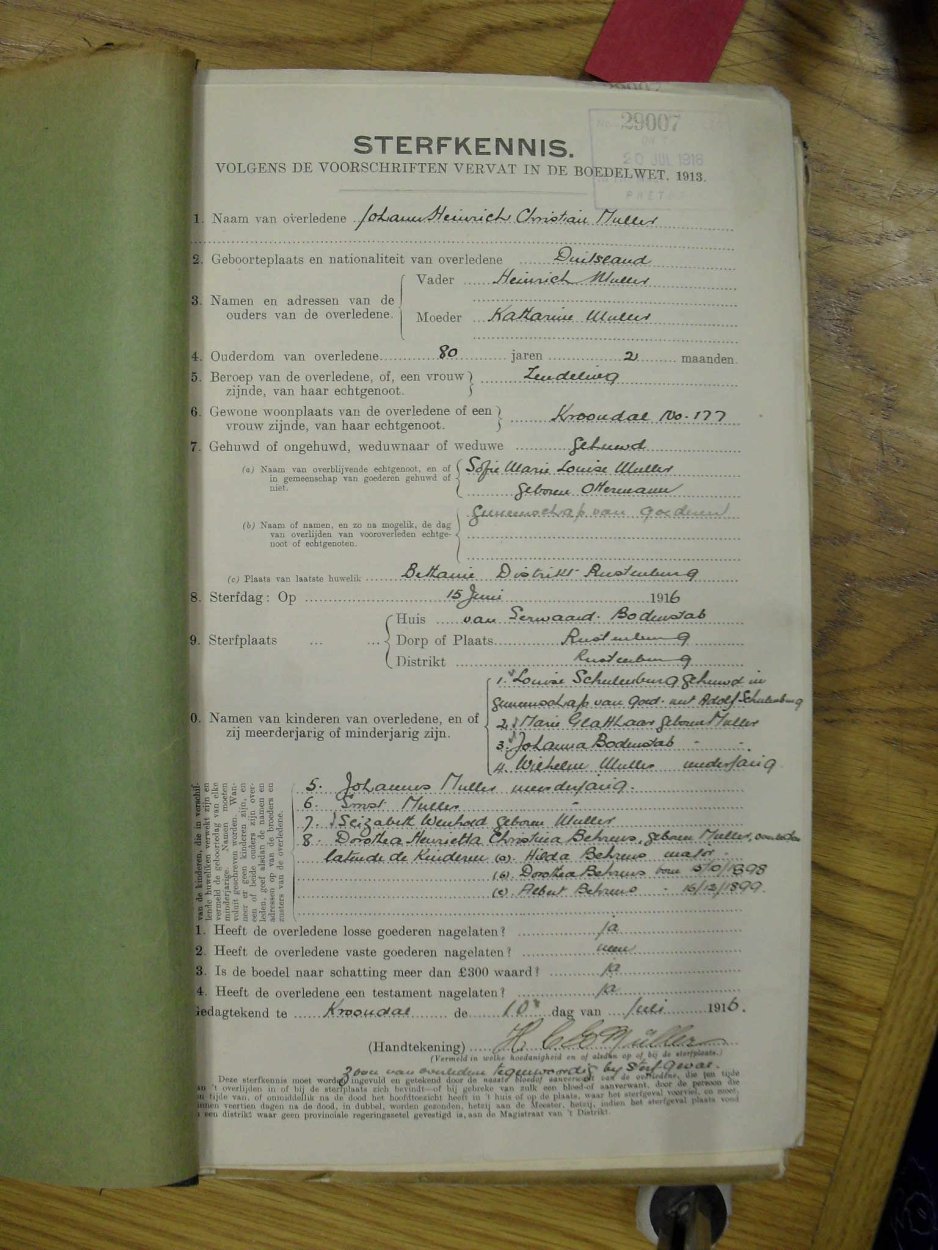 No. 29007
20 JUL 1916
STERFKENNIS.
VOLGENS DE VOORSCHRIFTEN VERVAT IN DE BOEDELWET, 1913.
1. Naam van overledene Johann Heinrich Christian Muller
2. Geboorteplaats en nationaliteit van overledene Duitsland
3. Namen en adressen van de ouders van de overledene.
Vader Heinrich Muller
Moeder Katharine Muller
4. Ouderdom van overledene 80 jaren 2 maanden.
5. Beroep van de overledene, of, een vrouw zijnde, van haar echtgenoot. Zendeling
6. Gewone woonplaats van de overledene of een vrouw zijnde, van haar echtgenoot. Kroondal No. 177
7. Gehuwd of ongehuwd, weduwnaar of weduwe gehuwd
(a) Naam van overblijvende echtgenoot, en of
in gemeenschap van goederen gehuwd of
niet.
Sofie Marie Louise Muller
geboren Ottermann
gemeenschap van goederen
(b) Naam of namen, en zo na mogelik, de dag
van overlijden van vooroverleden echtge-
noot of echtgenoten.
(c) Plaats van laatste huwelik Bethanie Distrikt Rustenburg
8. Sterfdag: Op 15 Juni 1916
9. Sterfplaats
Huis van Serwaard. Bodenstab
Dorp of Plaats Rustenburg
Distrikt Rustenburg
0. Namen van kinderen van overledene, en of
zij meerderjarig of minderjarig zijn.
1. Louise Schulenburg gehuwd in
gemeenschap van goed. met Adolf Schulenburg
2. Marie Glatthaar geboren Muller
3. Johanna Bodenstab " "
4. Wilhelm Muller merderjarig
van de kinderen, die in verschil-
lende huweliken verwekt zijn en
vermeld de geboortedag van elke
minderjarige. Namen moeten
voluit geschreven worden. Wan-
neer er geen kinderen zijn, en
een of beide ouders zijn over-
leden, geef alsdan de namen en
adressen op van de broeders en
zusters van de overledene.
5. Johannes Muller meerderjarig.
6. Ernst Muller "
7. Elizabeth Wenhold geboren Muller
8. Dorothea Henrietta Christina Behrens, geboren Muller,
latende de Kinderen (a) Hilda Behrens major
(b) Dorothea Behrens born /1898
(c) Albert Behrens " 16/12/1899
1. Heeft de overledene losse goederen nagelaten? ja
2. Heeft de overledene vaste goederen nagelaten? neen
3. Is de boedel naar schatting meer dan £300 waard? ja
4. Heeft de overledene een testament nagelaten? ja
Gedagtekend te Kroondal de 10e dag van Juli 1916.
(Handtekening) H. Müller
(Vermeld in welke hoedanigheid en of aldan op of bij de sterfplaats.)
Zoon van overledene tegenwoordig bij sterfgeval.
Deze sterfkennis moet worden ingevuld en getekend door de naaste bloed of aanverwant van de overledene, die ten tijde
van 't overlijden in of bij de sterfplaats zich bevindt—of bij gebreke van zulk een bloed of aanverwant, door de persoon die
ten tijde van, of onmiddellik na de dood het hoofdtoezicht heeft in 't huis of op de plaats, waar het sterfgeval voorviel, en moet,
binnen veertien dagen na de dood, in dubbel, worden gezonden, hetzij aan de Meester, hetzij, indien het sterfgeval plaats vond
in een distrikt waar geen provinciale regeringszetel gevestigd is, aan de Magistraat van 't Distrikt.